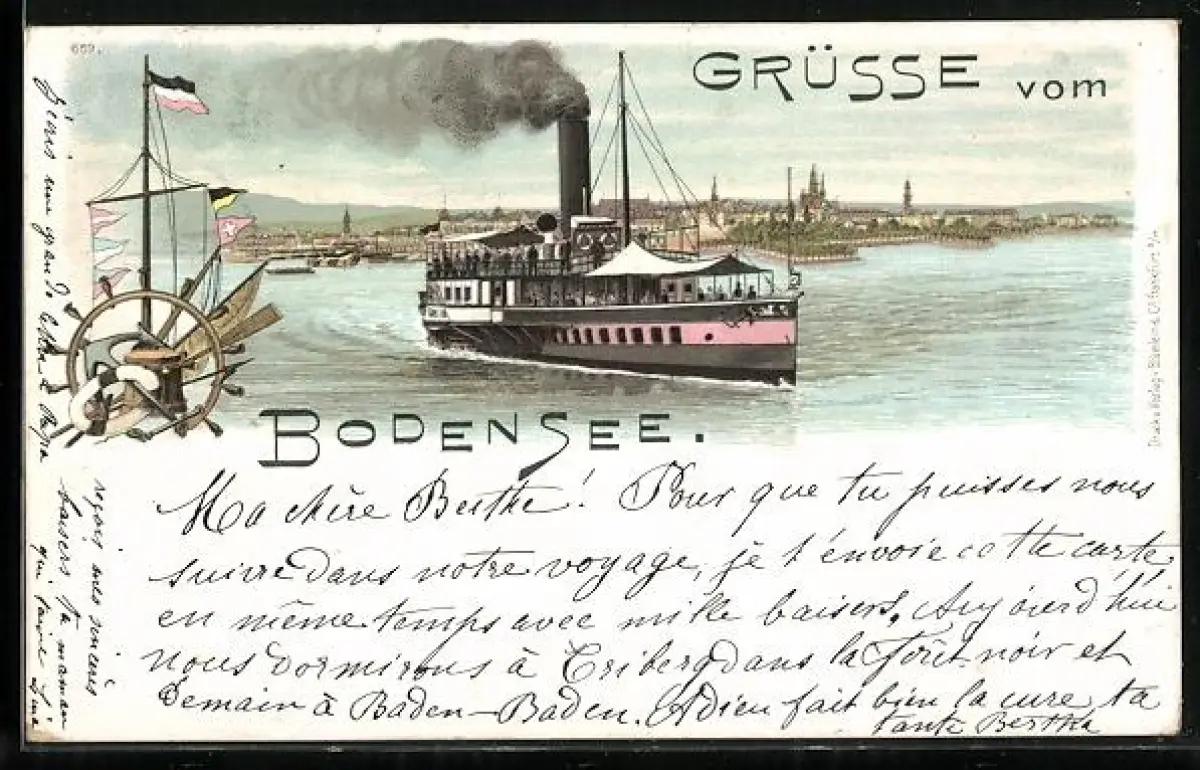 669.
GRÜSSE vom
BODENSEE.
Ma chère Berthe! Pour que tu puisses nous
suivre dans notre voyage, je t'envoie cette carte
en même temps avec mille baisers. Aujourd'hui
nous dormirons à Triberg dans la forêt noir et
Demain à Baden-Baden. Adieu fait bien la cure ta
tante Bertha
une grande
reçois mes sincères
baisers ta maman